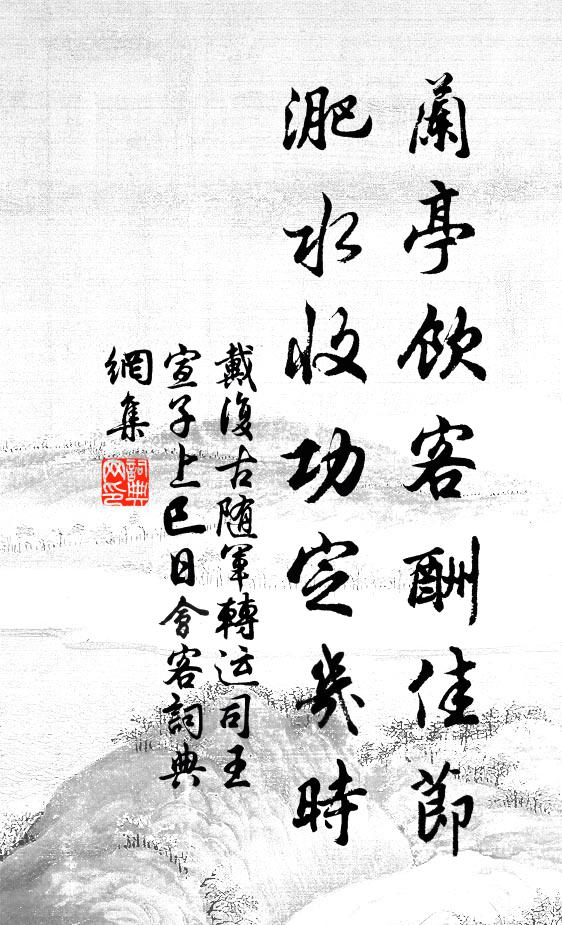 蘭亭飲客酬佳節
淝水收功定幾時
戴復古随軍轉运司王
宣子上巳日會客詞典
網集
詞典网印